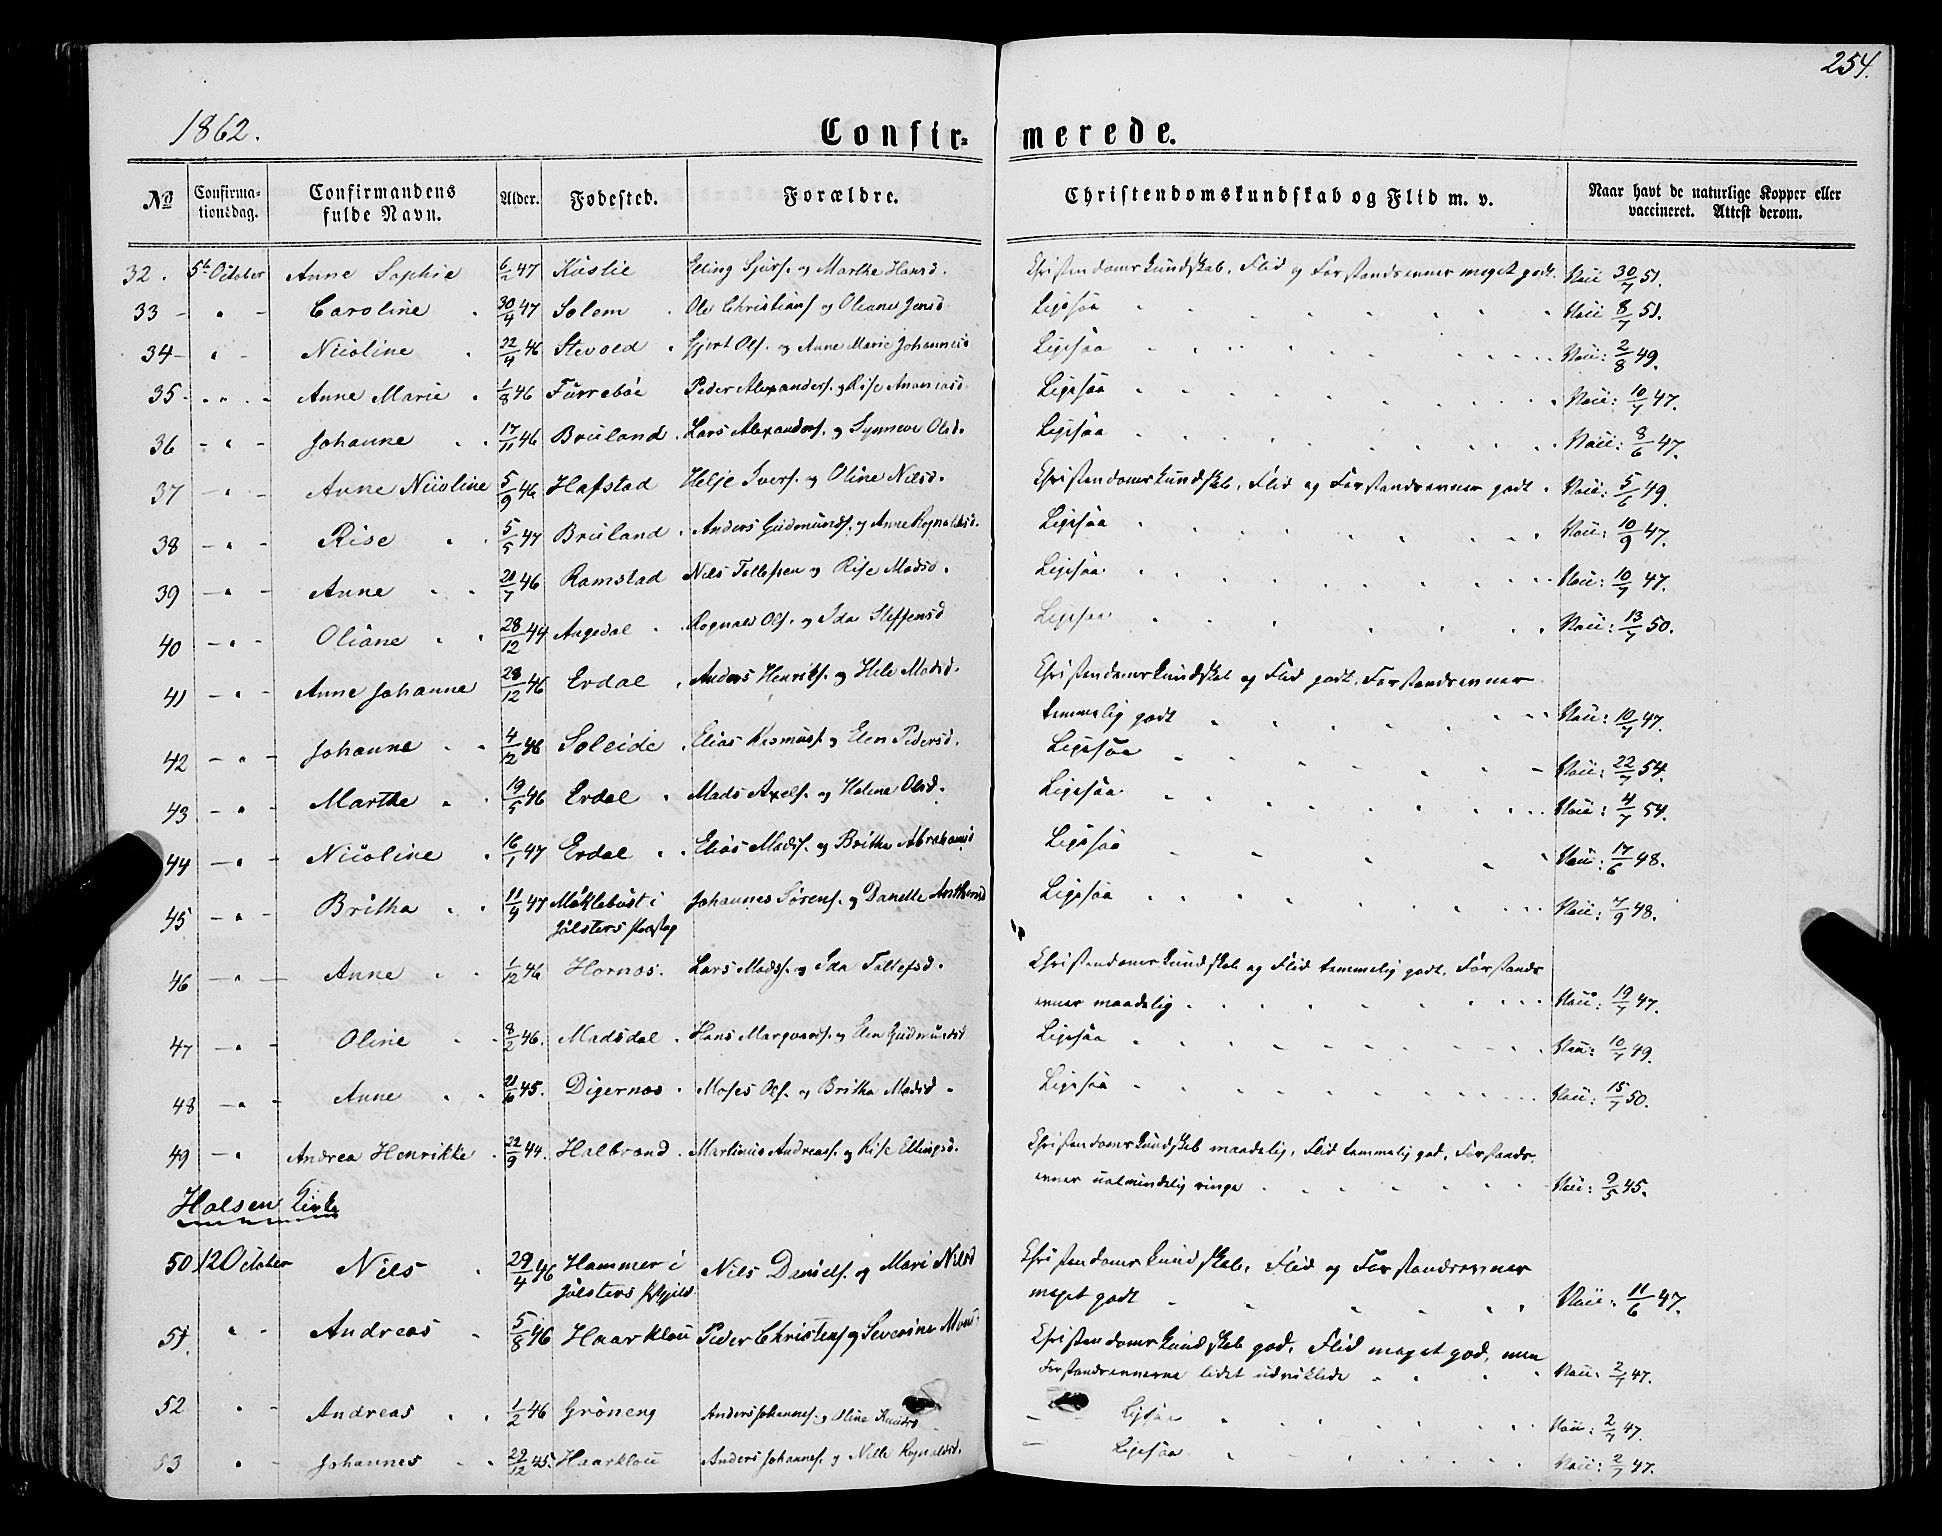 254.
1862.
Confir= merede.
No Confirma- Confirmandens Alder. Fødested. Forældre. Christendomskundskab og Flid m. v. Naar havt de naturlige Kopper eller
tionsdag. fulde Navn. vaccineret. Attest derom.
32. 5te October Anne Sophie 6/2 47 Elling Sjurs. og Marthe Hansd. Christendomskundskab, Flid og Forstandsevner meget godt. Vacc 30/7 51.
33 - " - Caroline " 30/4 47 Solem " Ole Christians. og Oliane Jensd. Ligesaa Vacc 8/7 51.
34 - " - Nicoline " 22/4 46 Stevold " Gjert Ols. og Anne Marie Johannesd Ligesaa Vacc: 2/8 49.
35 - " - Anne Marie " 1/8 46 Furrebøe Peder Alexanders. og Rise Ananiasd. Ligesaa Vacc: 10/7 47.
36 - " - Johanne " 17/11 46 Bruland " Lars Alexanders. og Synneve Olsd. Ligesaa Vacc: 8/6 47.
37 - " - Anne Nicoline 5/9 46 Hafstad Helje Ivers. og Oline Nilsd. Christendomskundskab, Flid og Forstandsevner godt. Vacc: 5/6 49.
38 - " - Rise " 5/5 47 Bruland " Anders Gudmunds. og Anne Rognaldsd. Ligesaa Vacc: 10/9 47.
39 - " - Anne " 7 46 Ramstad Nils Tollefsen og Rise Madsd. Ligesaa Vacc: 10/7 47.
40 - " - Oliane " 28/12 44 Angedal " Rognald Ols. og Ida Steffensd Ligesaa Vacc: 13/7 50.
41 - " - Anne Johanne 28/12 46 Erdal " Anders Henriks. og Madsd. Christendomskundskab og Flid godt, Forstandsevner
temmelig godt Vacc: 10/7 47.
42 - " - Johanne " 4/12 46 Soleide " Elias Rasmus. og Elen Pedersd. Ligesaa Vacc: 22/7 54.
43 - " - Marthe " 19/5 46 Erdal " Mads Axels. og Helene Olsd. Ligesaa Vacc: 4/7 54.
44 - " - Nicoline " 16/1 47 Erdal " Elias Mads. og Britha Abrahamsd Ligesaa Vacc: 17/6 48.
45 - " - Britha " 11/4 47 Møklebust i Johannes Sørens. og Danelle Ligesaa Vacc: 7/9 48.
Jølsters
46 - " - Anne " 1/12 46 Hornæs. Lars Mads. og Ida Tollefsd. Christendomskundskab og Flid temmelig godt, Forstands
evner maadelig Vacc: 19/7 47.
47 - " - Oline " 8/2 46. Madsdal " Hans Marqvards. og Elen Gudmundsd Ligesaa Vacc: 10/7 49.
48 - " - Anne " 6 45. Digernæs " Moses Ols. og Britha Madsd. Ligesaa Vacc: 15/7 50.
49 - " Andrea Henrikke " 22/9 44. Halbrend " Martinus Andreas. og Rise Ellingsd. Christendomskundskab maadelig, Flid temmelig god, Forstands-
evner ualmindelig ringe Vacc: 9/5 45.
Holsen Kirke
50 12 October Nils " 29/4 46 Hammer i Nils Daniels. og Mari Nilsd Christendomskundskab, Flid og Forstandsevner
Jølsters meget godt Vacc: 11/6 47.
51 " - Andreas " 5/8 46 Haarklou Peder Christens. og Severine Christendomskundskab god, Flid meget god, men
Forstandsevnerne lidet udviklede Vacc: 2/7 47.
52 " - Andreas " 1/2 46 Grøneng Anders Johannes. og Oline Knudsd - Ligesaa Vacc: 2/7 47.
53 " - Johannes " 29/12 45. Haarklou Anders Johannes. og Nille Rognaldsd. - Ligesaa Vacc: 2/7 47.